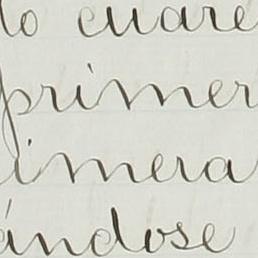 to cuare
primer
imera
ándose